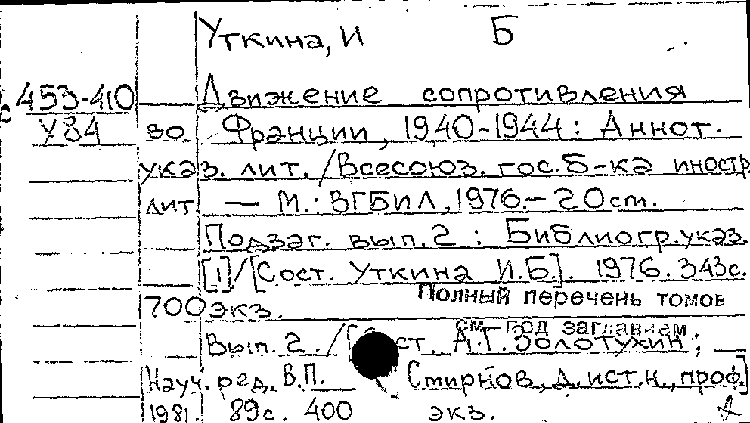 Уткина, И Б
с 453-410 Движение сопротивления
У84 во Франции, 1940-1944: Аннот.
указ. лит. /Всесоюз. гос. б-ка иностр.
лит — М.: ВГБИЛ, 1976.— 20 см.
Подзаг. вып. 2: Библиогр. указ.
[1]/[Сост. Уткина И.Б.]. 1976. 343с.
700 экз. Полный перечень томов
см под заглавием
Вып. 2. / ст. А.Г. Золотухин;
Науч. ред. В.П. Смирнов, д. ист. н., проф]
1981. 89с. 400 экз.